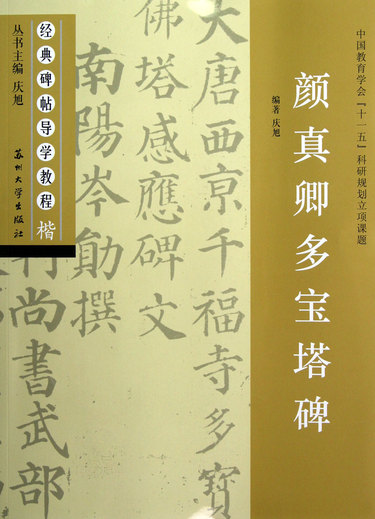 中国教育学会『十一五』科研规划立项课题
颜真卿多宝塔碑
编著 庆旭
大唐西京千福寺多寶
佛塔感應碑文
南陽岑勛撰
行尚書武部
经典碑帖导学教程 楷
丛书主编 庆旭
苏州大学出版社